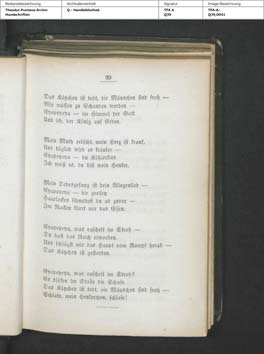 Bestandsbezeichnung
Archivalieneinheit
Signatur
Image-Bezeichnung
Theodor-Fontane-Archiv
Handschriften
Q - Handbibliothek
TFA A
Q39
TFA-A-
Q39_0041
Das Kätzchen ist todt, die Mäuschen sind froh —
Wir müssen zu Schanden werden —
Eyapopeya — im Himmel der Gott
Und ich, der König auf Erden.
Mein Muth erlischt, mein Herz ist krank,
Und täglich wird es kränker —
Eyapopeya —
Ich weiß es, du bist mein Henker.
Mein Todesgesang ist dein Wiegenlied —
Eyapopeya — die greisen
Haarlocken schneidest du ab zuvor —
Im Nacken klirrt mir das Eisen.
Eyapopeya, was raschelt im Stroh —
Du hast das Reich erworben,
Und schlägst mir das Haupt vom Rumpf herab —
Das Kätzchen ist gestorben.
Eyapopeya, was raschelt im Stroh?
Es blöken im Stalle die Schafe.
Das Kätzchen ist todt, die Mäuschen sind froh —
Schlafe, mein Henkerchen, schlafe!